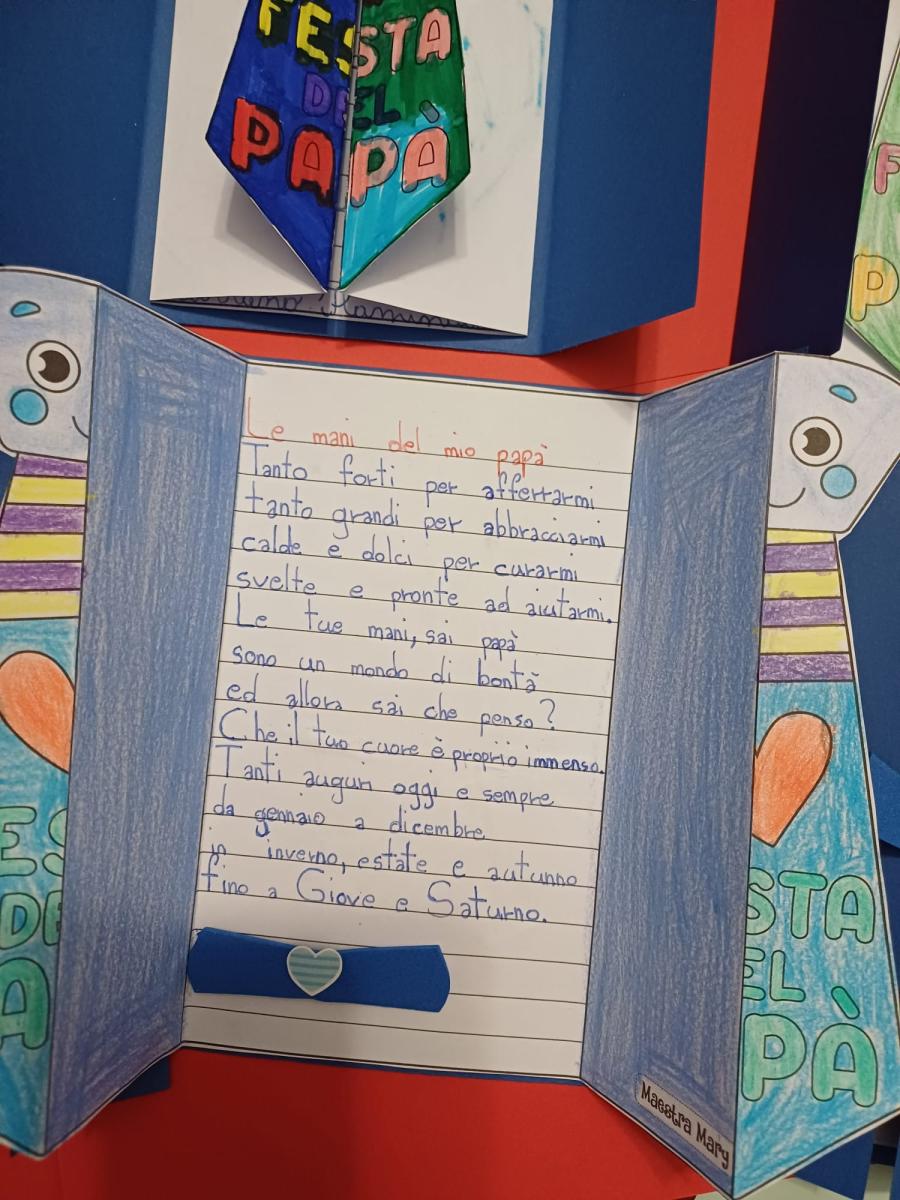 FESTA
DEL
PAPÀ
F
P
Le mani del mio papà
Tanto forti per afferrarmi
tanto grandi per abbracciarmi
calde e dolci per curarmi
svelte e pronte ad aiutarmi.
Le tue mani, sai papà
sono un mondo di bontà
ed allora sai che penso?
Che il tuo cuore è proprio immenso.
Tanti auguri oggi e sempre
da gennaio a dicembre
in inverno, estate e autunno
fino a Giove e Saturno.
ES
DE
A
STA
EL
PÀ
Maestra Mary